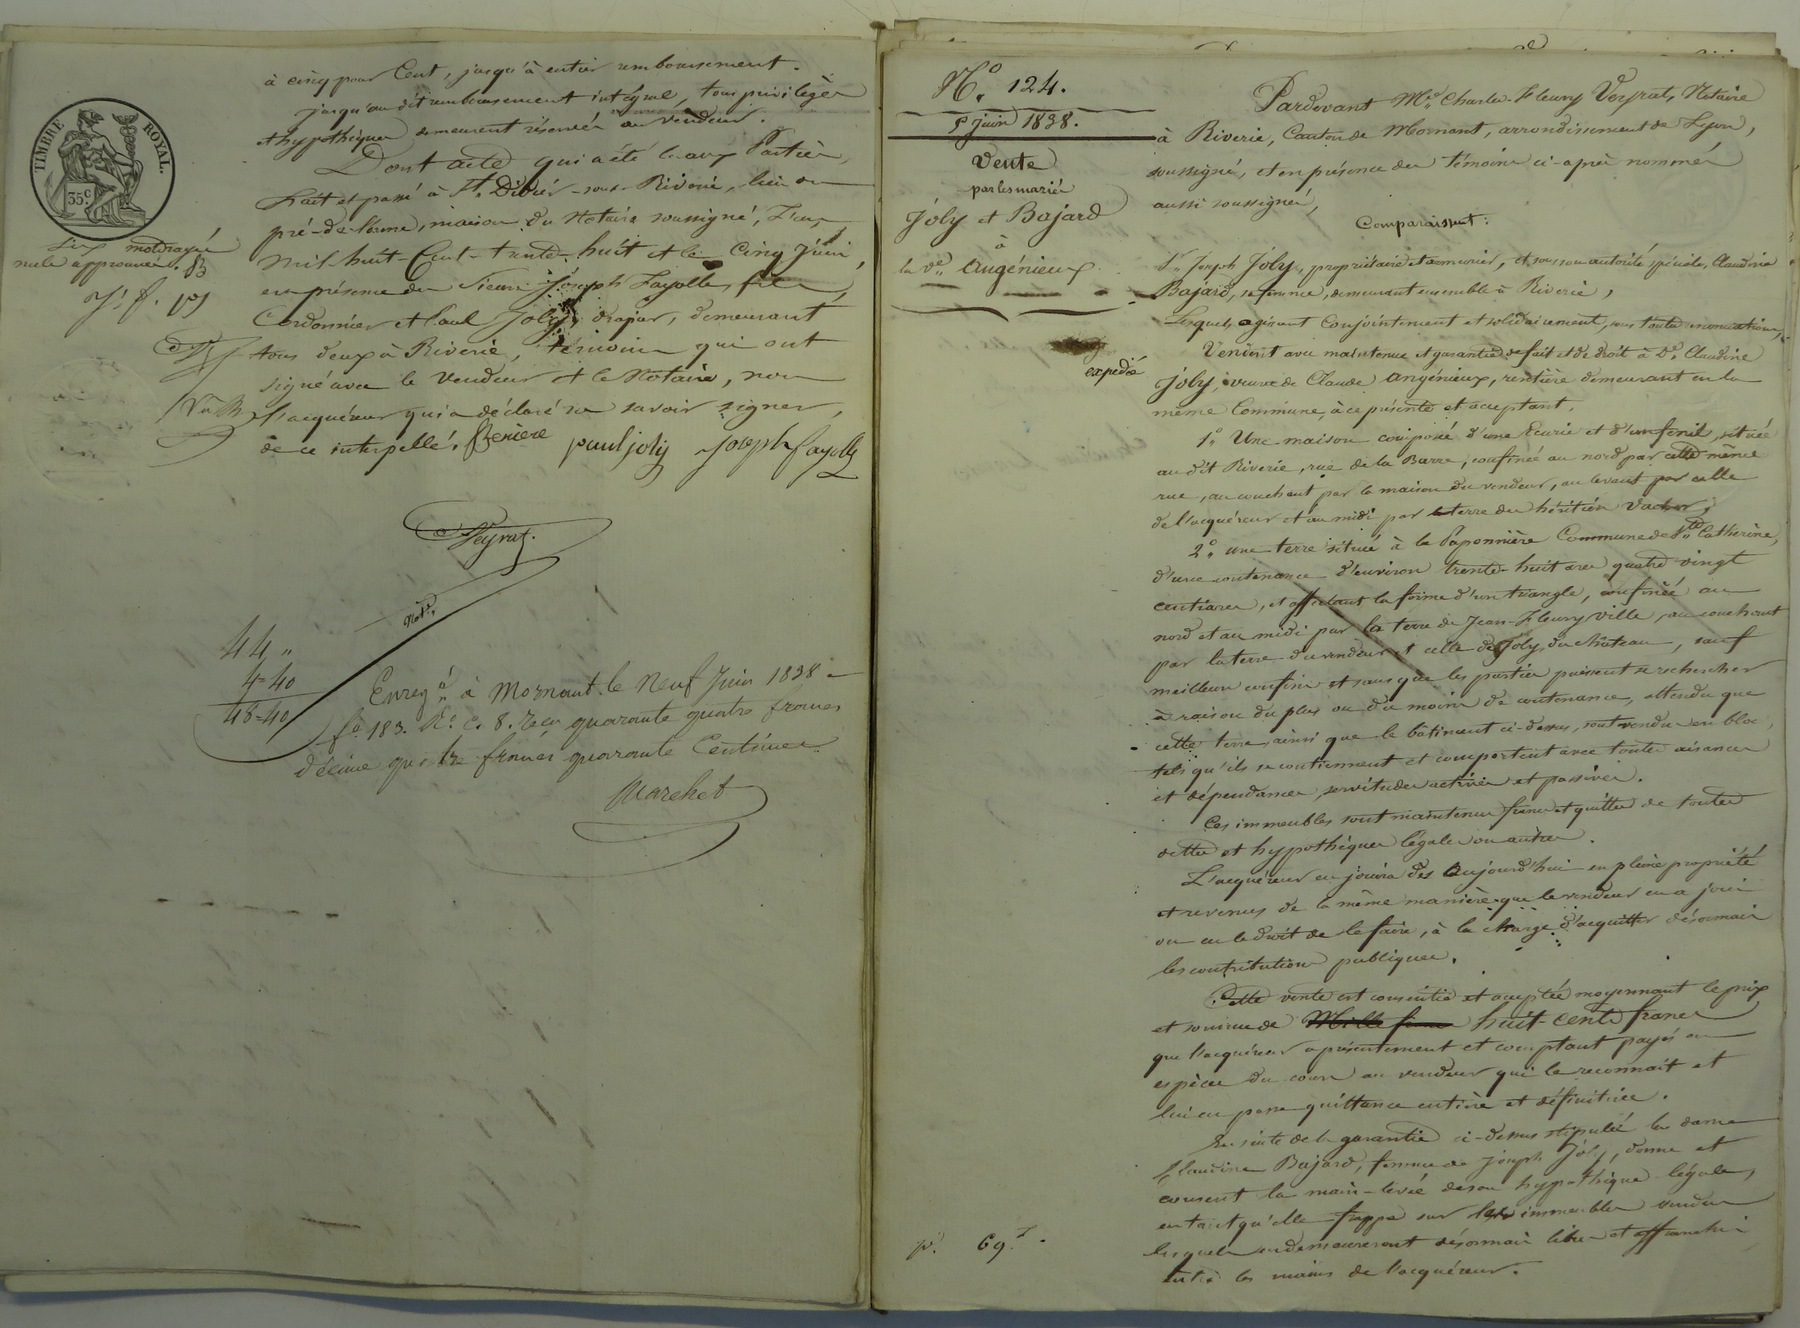 TIMBRE ROYAL.
35 c.
à cinq pour Cent, jusqu'à entier remboursement.
jusqu'au dit remboursement intégral, tous privilèges
et hypothèques demeurent réservés au vendeur.
Dont acte qui a été lu aux Parties,
Fait et passé à St. Didier-sous-Riverie, lieu de
pré-de-laune, maison du Notaire soussigné, L'an
mil-huit-Cent-trente-huit et le Cinq Juin,
en présence des Sieurs Joseph Fayolle fils,
Cordonnier et Paul Joly, drapier, demeurant
tous deux à Riverie, témoins qui ont
signé avec le vendeur et le Notaire, non
l'acquéreur qui a déclaré ne savoir signer,
de ce interpellé.
paul joly joseph fayolle
nuls approuvés.
J. f. pj
Veyrat.
Not.
44 "
4=40
48=40
Enreg. à Mornant le Neuf Juin 1838
fo. 183. Ro. c. 8. Reçu quarante quatre francs
décime quatre francs quarante Centimes.
Marchet
No. 124.
5 juin 1838.
Vente
par les mariés
Joly et Bajard
à
la ve. Angénieux
expédié
Pardevant Me. Charles-Fleury Veyrat, Notaire
à Riverie, Canton de Mornant, arrondissement de Lyon,
soussigné, et en présence des témoins ci-après nommés
aussi soussignés,
Comparaissent:
Sr. Joseph Joly, propriétaire et armurier, et sous son autorité spéciale, Claudine
Bajard, sa femme, demeurant ensemble à Riverie,
Lesquels agissant Conjointement et solidairement, sous toutes renonciations,
Vendent avec maintenue et garantie de fait et de droit à De. Claudine
Joly, veuve de Claude Angénieux, rentière demeurant en la
même Commune, à ce présente et acceptant,
1o. Une maison composée d'une Ecurie et d'un fenil, située
au dit Riverie, rue de la Barre, confinée au nord par cette même
rue, au couchant par la maison du vendeur, au levant par celle
de l'acquéreur et au midi par la terre des héritiers Vacher;
2o. une terre située à la Paponnière Commune de Ste. Catherine,
d'une contenance d'environ trente-huit ares quatre vingt
centiares, et affectant la forme d'un triangle, confinée au
nord et au midi par la terre de Jean-Fleury Ville, au couchant
par la terre du vendeur et celle de Joly du château, sauf
meilleurs confins et sans que les parties puissent se rechercher
à raison du plus ou du moins de contenance, attendu que
cette terre, ainsi que le bâtiment ci-dessus, sont vendus en bloc,
tels qu'ils se contiennent et comportent avec toutes aisances
et dépendances, servitudes actives et passives.
Ces immeubles sont maintenus francs et quittes de toutes
dettes et hypothèques légales ou autres.
L'acquéreur en jouira dès aujourd'hui en pleine propriété
et revenus de la même manière que le vendeur en a joui
ou eu le droit de le faire, à la charge d'acquitter désormais
les contributions publiques.
Cette vente est consentie et acceptée moyennant le prix
et somme de Mille francs huit-cents francs
que l'acquéreur a présentement et comptant payés en
espèces du cours au vendeur qui le reconnaît et
lui en passe quittance entière et définitive.
En suite de la garantie ci-dessus stipulée la dame
Claudine Bajard, femme de Joseph Joly, donne et
consent la main-levée de son hypothèque légale,
en tant qu'elle frappe sur les immeubles vendus
lesquels en demeureront désormais libres et affranchis
entre les mains de l'acquéreur.
p. 69.